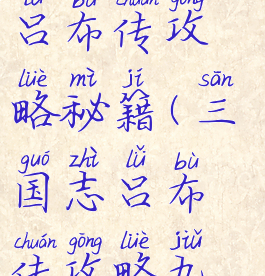 lǚ bù chuán gōng
吕布传攻
lüè mì jí sān
略秘籍(三
guó zhì lǚ bù
国志吕布
chuán gōng lüè jiǔ
传攻略九